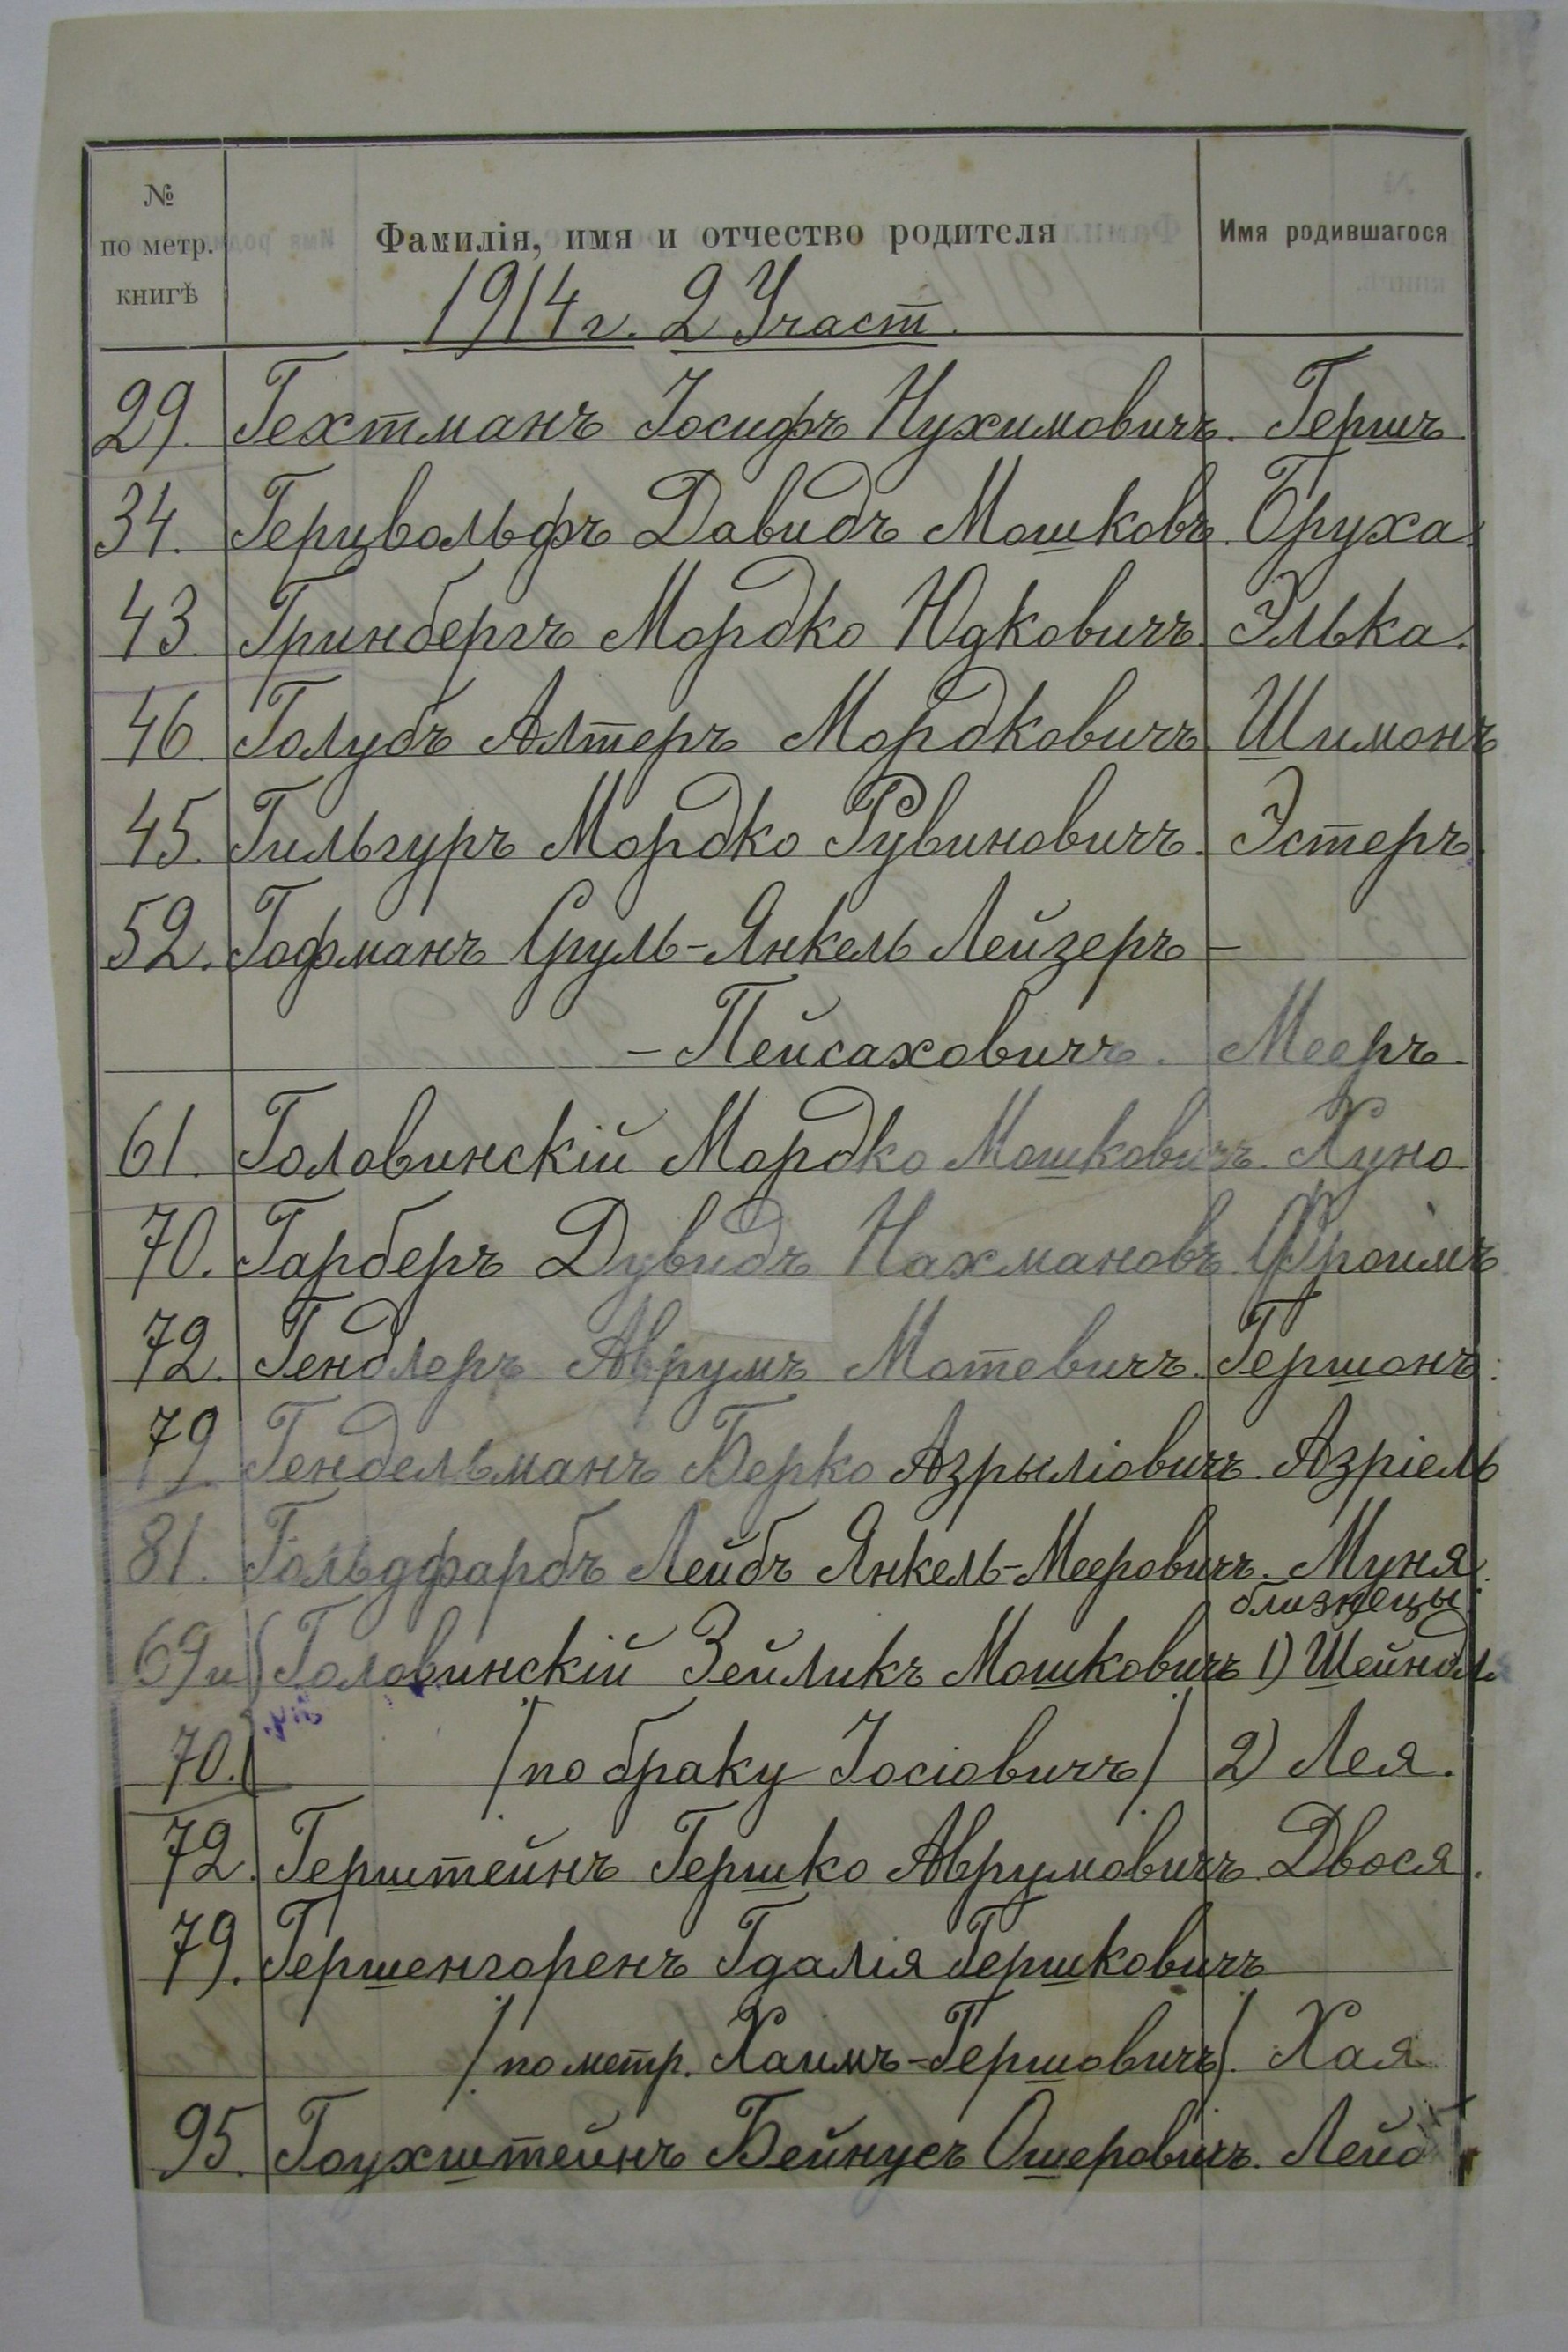 № по метр. книгѣ Фамилія, имя и отчество родителя Имя родившагося
1914 г. 2 Участ.
29. Гехтманъ Іосифъ Нухимовичъ. Гершъ.
34. Герцвольфъ Давидъ Мошковъ. Бруха.
43. Гринбергъ Мордко Юдковичъ. Элька.
46. Голубъ Алтеръ Мордковичъ. Шимонъ
45. Гильгуръ Мордко Рувиновичъ. Эстеръ.
52. Гофманъ Сруль-Янкель Лейзеръ -
- Пейсаховичъ. Мееръ.
61. Головинскій Мордко Мошковичъ. Хуно
70. Гарберъ Дувидъ Нахмановъ. Фроимъ
72. Гендлеръ Аврумъ Мотевичъ. Гершонъ.
79. Гендельманъ Берко Азрыліовичъ. Азріель
81. Гольдфарбъ Лейбъ Янкель-Мееровичъ. Муня.
близнецы:
69 и Головинскій Зейликъ Мошковичъ 1) Шейндля
70. /по браку Іосіовичъ/ 2) Лея.
72. Герштейнъ Гершко Аврумовичъ. Двося.
79. Гершенгоренъ Гдалія Гершковичъ
/по метр. Хаимъ-Гершовичъ/. Хая
95. Гоухштейнъ Бейнусъ Ошеровичъ.